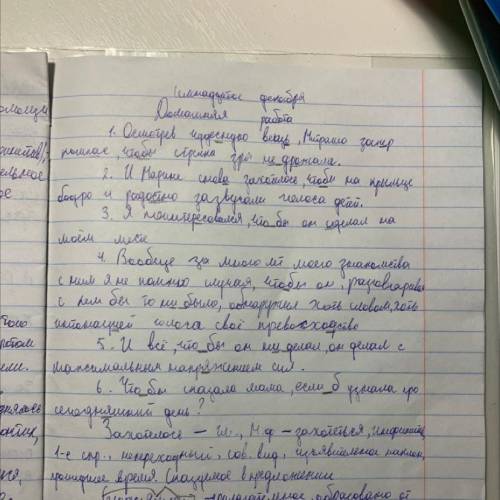 декабря
Домашняя работа
1. Осмотрев вещь, Митраша замер
чтобы стрелка не дрожала.
2. И Марине снова захотелось, чтобы на крыльце
бодро и радостно зазвучали голоса детей.
3. Я поинтересовался, что бы он сделал на
моём месте
4. Вообще за много лет моего знакомства
с ним я не помню случая, чтобы он, разговаривая
с кем бы то ни было, обнаружил хоть словом, хоть
интонацией голоса своё превосходство
5. И всё, что бы он ни делал, он делал с
максимальным напряжением сил.
6. Что бы сказала мама, если б узнала про
сегодняшний день?
Захотелось – гл., Н.ф – захотеться,
1-е спр., непереходный, сов. вид, изъявительное наклон,
прошедшее время. Сказуемое в предложении